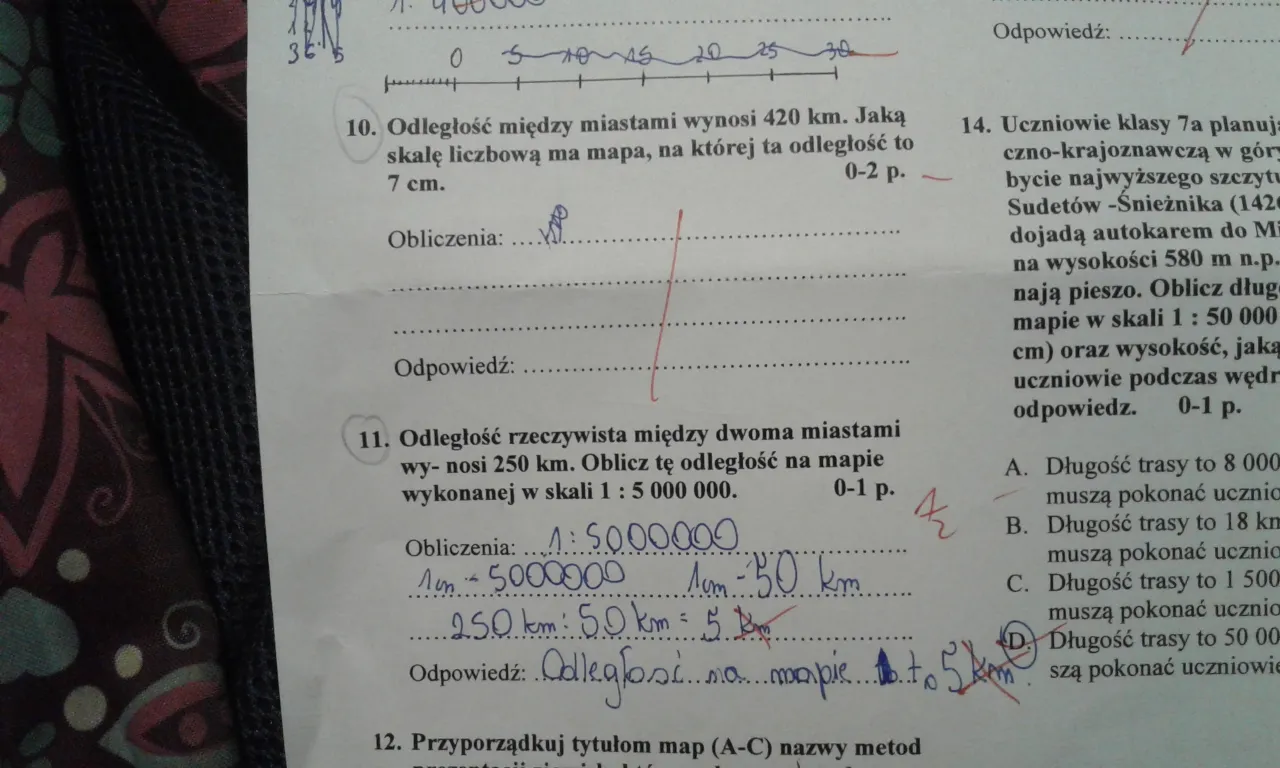 1:
36.
0 5 10 15 20 25 30
10. Odległość między miastami wynosi 420 km. Jaką
skalę liczbową ma mapa, na której ta odległość to
7 cm. 0-2 p.
Obliczenia:
Odpowiedź:
11. Odległość rzeczywista między dwoma miastami
wy- nosi 250 km. Oblicz tę odległość na mapie
wykonanej w skali 1 : 5 000 000. 0-1 p.
Obliczenia: 1:5000000
1cm - 5000000 1cm - 50 km
250 km : 50 km = 5 km
Odpowiedź: Odległość na mapie to 5 km
12. Przyporządkuj tytułom map (A-C) nazwy metod
Odpowiedź:
14. Uczniowie klasy 7a planują
czno-krajoznawczą w góry
bycie najwyższego szczytu
Sudetów -Śnieżnika (142
dojadą autokarem do Mi
na wysokości 580 m n.p.
nają pieszo. Oblicz dług
mapie w skali 1 : 50 000
cm) oraz wysokość, jaką
uczniowie podczas wędr
odpowiedz. 0-1 p.
A. Długość trasy to 8 000
muszą pokonać ucznio
B. Długość trasy to 18 km
muszą pokonać ucznio
C. Długość trasy to 1 500
muszą pokonać ucznio
D. Długość trasy to 50 00
szą pokonać uczniowie